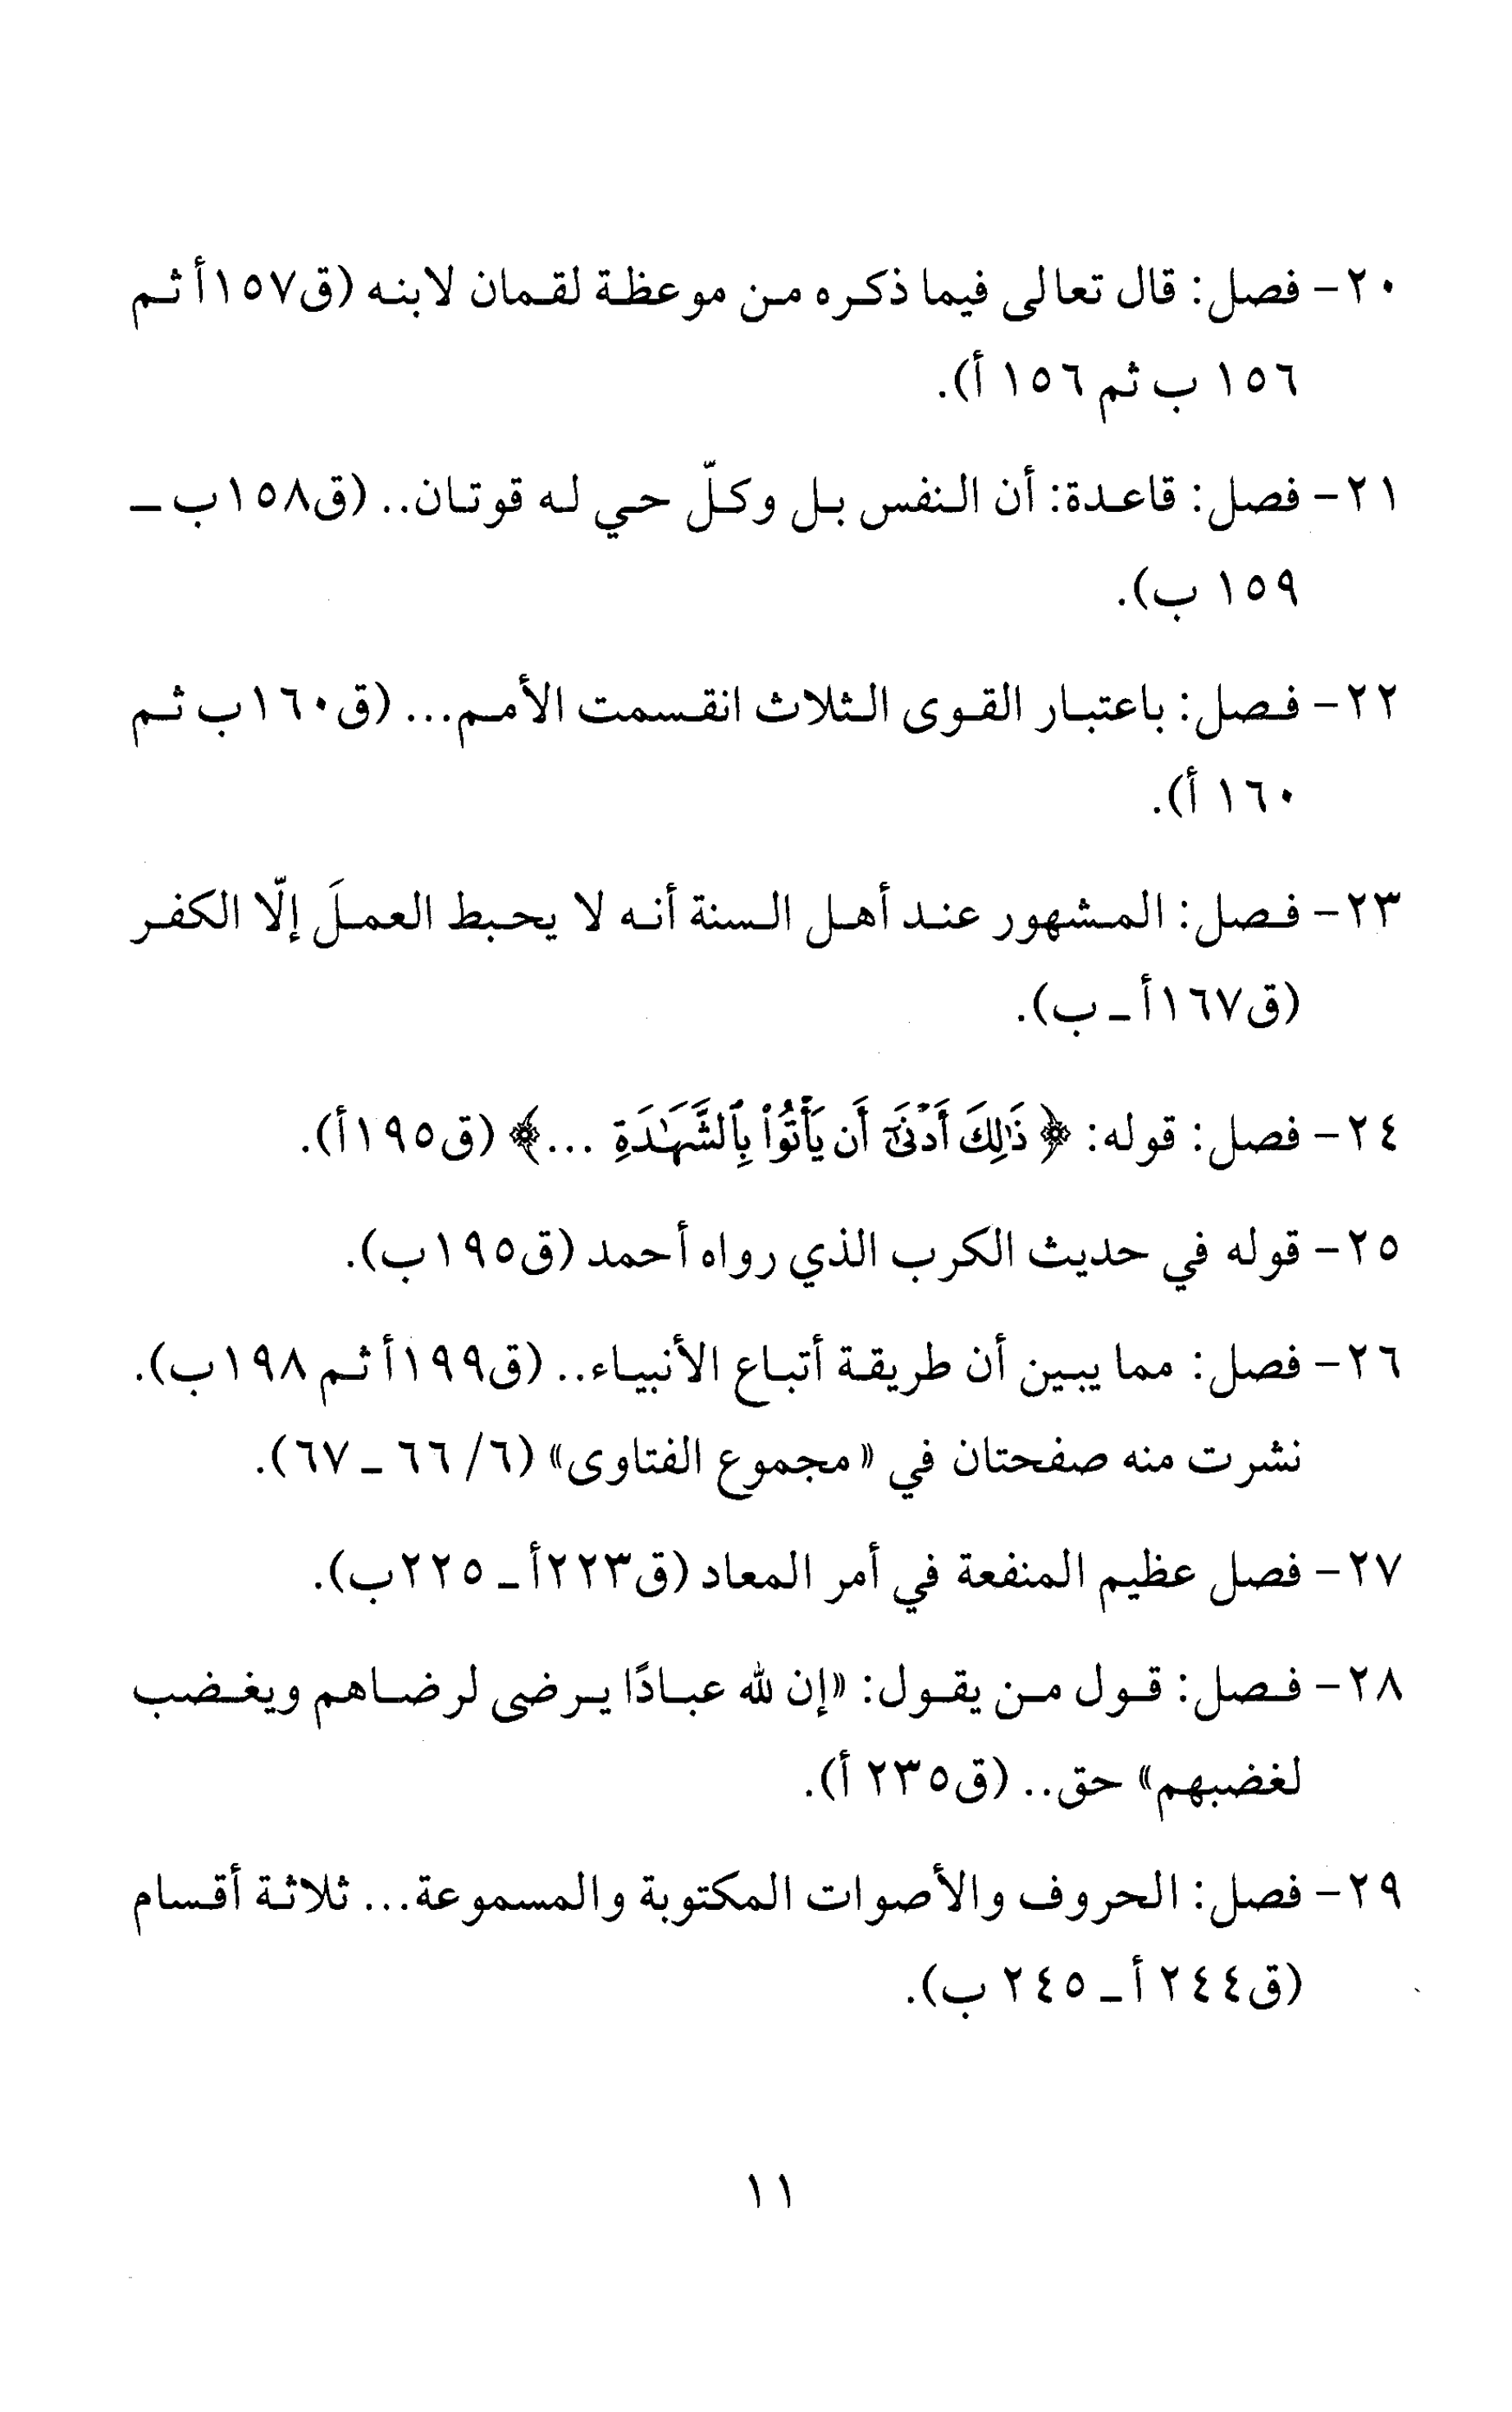 ٢٠- فصل: قال تعالى فيما ذكره من موعظة لقمان لابنه (ق١٥٧أ ثم
١٥٦ ب ثم ١٥٦ أ).
٢١- فصل: قاعدة: أن النفس بل وكلّ حي له قوتان.. (ق١٥٨ب ـ
١٥٩ ب).
٢٢- فصل: باعتبار القوى الثلاث انقسمت الأمم... (ق١٦٠ب ثم
١٦٠ أ).
٢٣- فصل: المشهور عند أهل السنة أنه لا يحبط العملَ إلّا الكفر
(ق١٦٧أ ـ ب).
٢٤- فصل: قوله: ﴿ذَٰلِكَ أَدۡنَىٰٓ أَن يَأۡتُواْ بِٱلشَّهَٰدَةِ ...﴾ (ق١٩٥أ).
٢٥- قوله في حديث الكرب الذي رواه أحمد (ق١٩٥ب).
٢٦- فصل: مما يبين أن طريقة أتباع الأنبياء.. (ق١٩٩أ ثم ١٩٨ب).
نشرت منه صفحتان في «مجموع الفتاوى» (٦/ ٦٦ ـ ٦٧).
٢٧- فصل عظيم المنفعة في أمر المعاد (ق٢٢٣أ ـ ٢٢٥ب).
٢٨- فصل: قول من يقول: «إن لله عبادًا يرضى لرضاهم ويغضب
لغضبهم» حق.. (ق٢٣٥ أ).
٢٩- فصل: الحروف والأصوات المكتوبة والمسموعة... ثلاثة أقسام
(ق٢٤٤ أ ـ ٢٤٥ ب).
١١